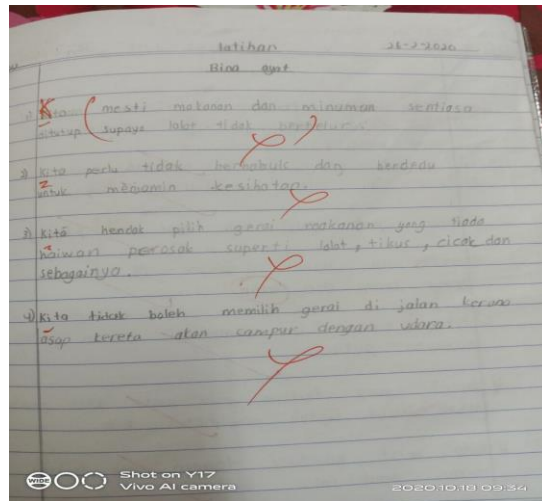 latihan 26-2-2020
Bina ayat
1) Kita mesti makanan dan minuman sentiasa
ditutup supaya lalat tidak
2) Kita perlu tidak dan
untuk menjamin kesihatan.
3) Kita hendak pilih gerai makanan yang tiada
haiwan perosak superti lalat, tikus, cicak dan
sebagainya.
4) Kita tidak boleh memilih gerai di jalan kerana
asap kereta akan campur dengan udara.
WIDE
Shot on Y17
Vivo AI camera
2020.10.18 09:34